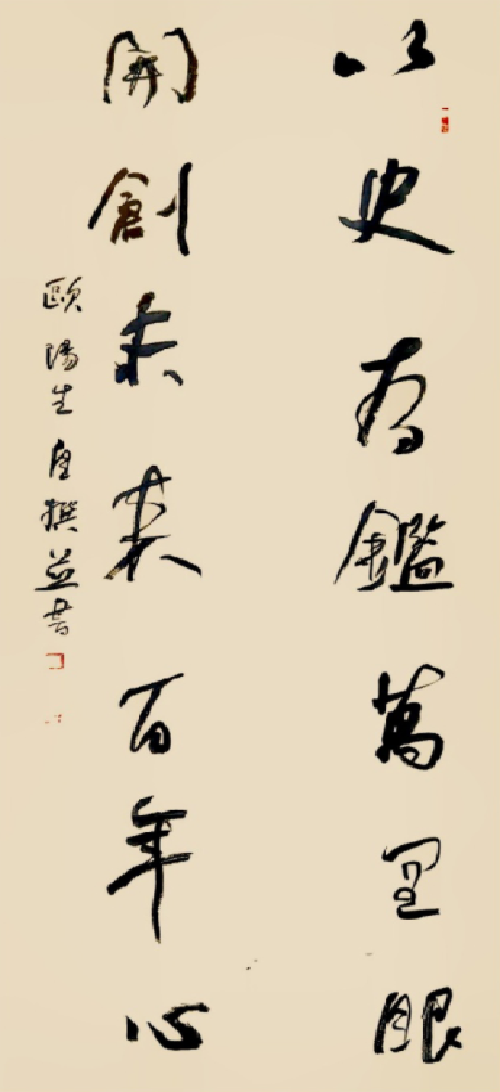 以史為鑑萬里眼
開創未來百年心
歐陽生自撰並書